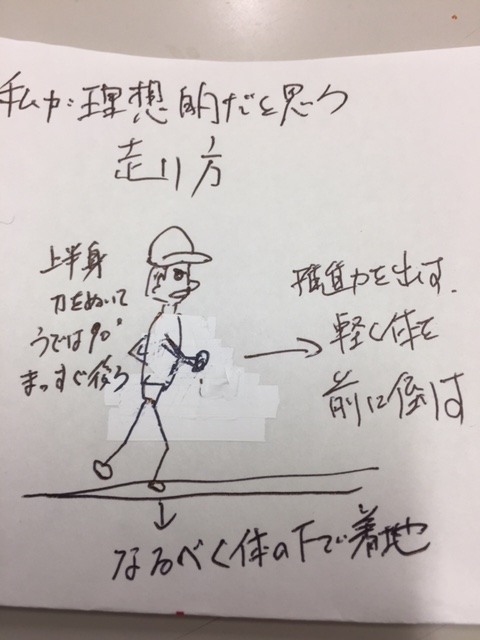 私が理想的だと思う
走り方
上半身
力をぬいて
うでは90°
まっすぐ後ろ
推進力を出す.
軽く体を
前に倒す
なるべく体の下で着地